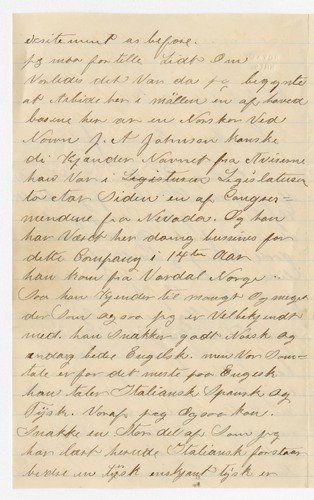 exsitement as before.
jg maa fortelle Lidt Om
Vorledes det Van da jg begynte
at Arbide her i mällen en af hoved
bosene her ar en Norsker Ved
Navn J. A Johnson kanske
de Kjander Navnet fra Aviserne
han Var i Legislaturen
to Aar Siden en af Congres=
mendene fra Nevada. Og han
har Været her doing bussines for
dette Company i 14ten Aar
han kom fra Vardal Norge.
Saa han Kjender til mangt Og meget
der Som Ogsaa jg er Velbekjendt
med. han Snakker godt Norsk og
andog bedre Engelsk. men Vor Som-
tale er for det meste paa Engesk
han taler Italiansk Spansk og
Tysk. Voraf jag Ogsaa kan
Snakke en Stor del af Som jeg
har lært herude Italiansk forstaar
bedre en tysk enskjønt tysk er